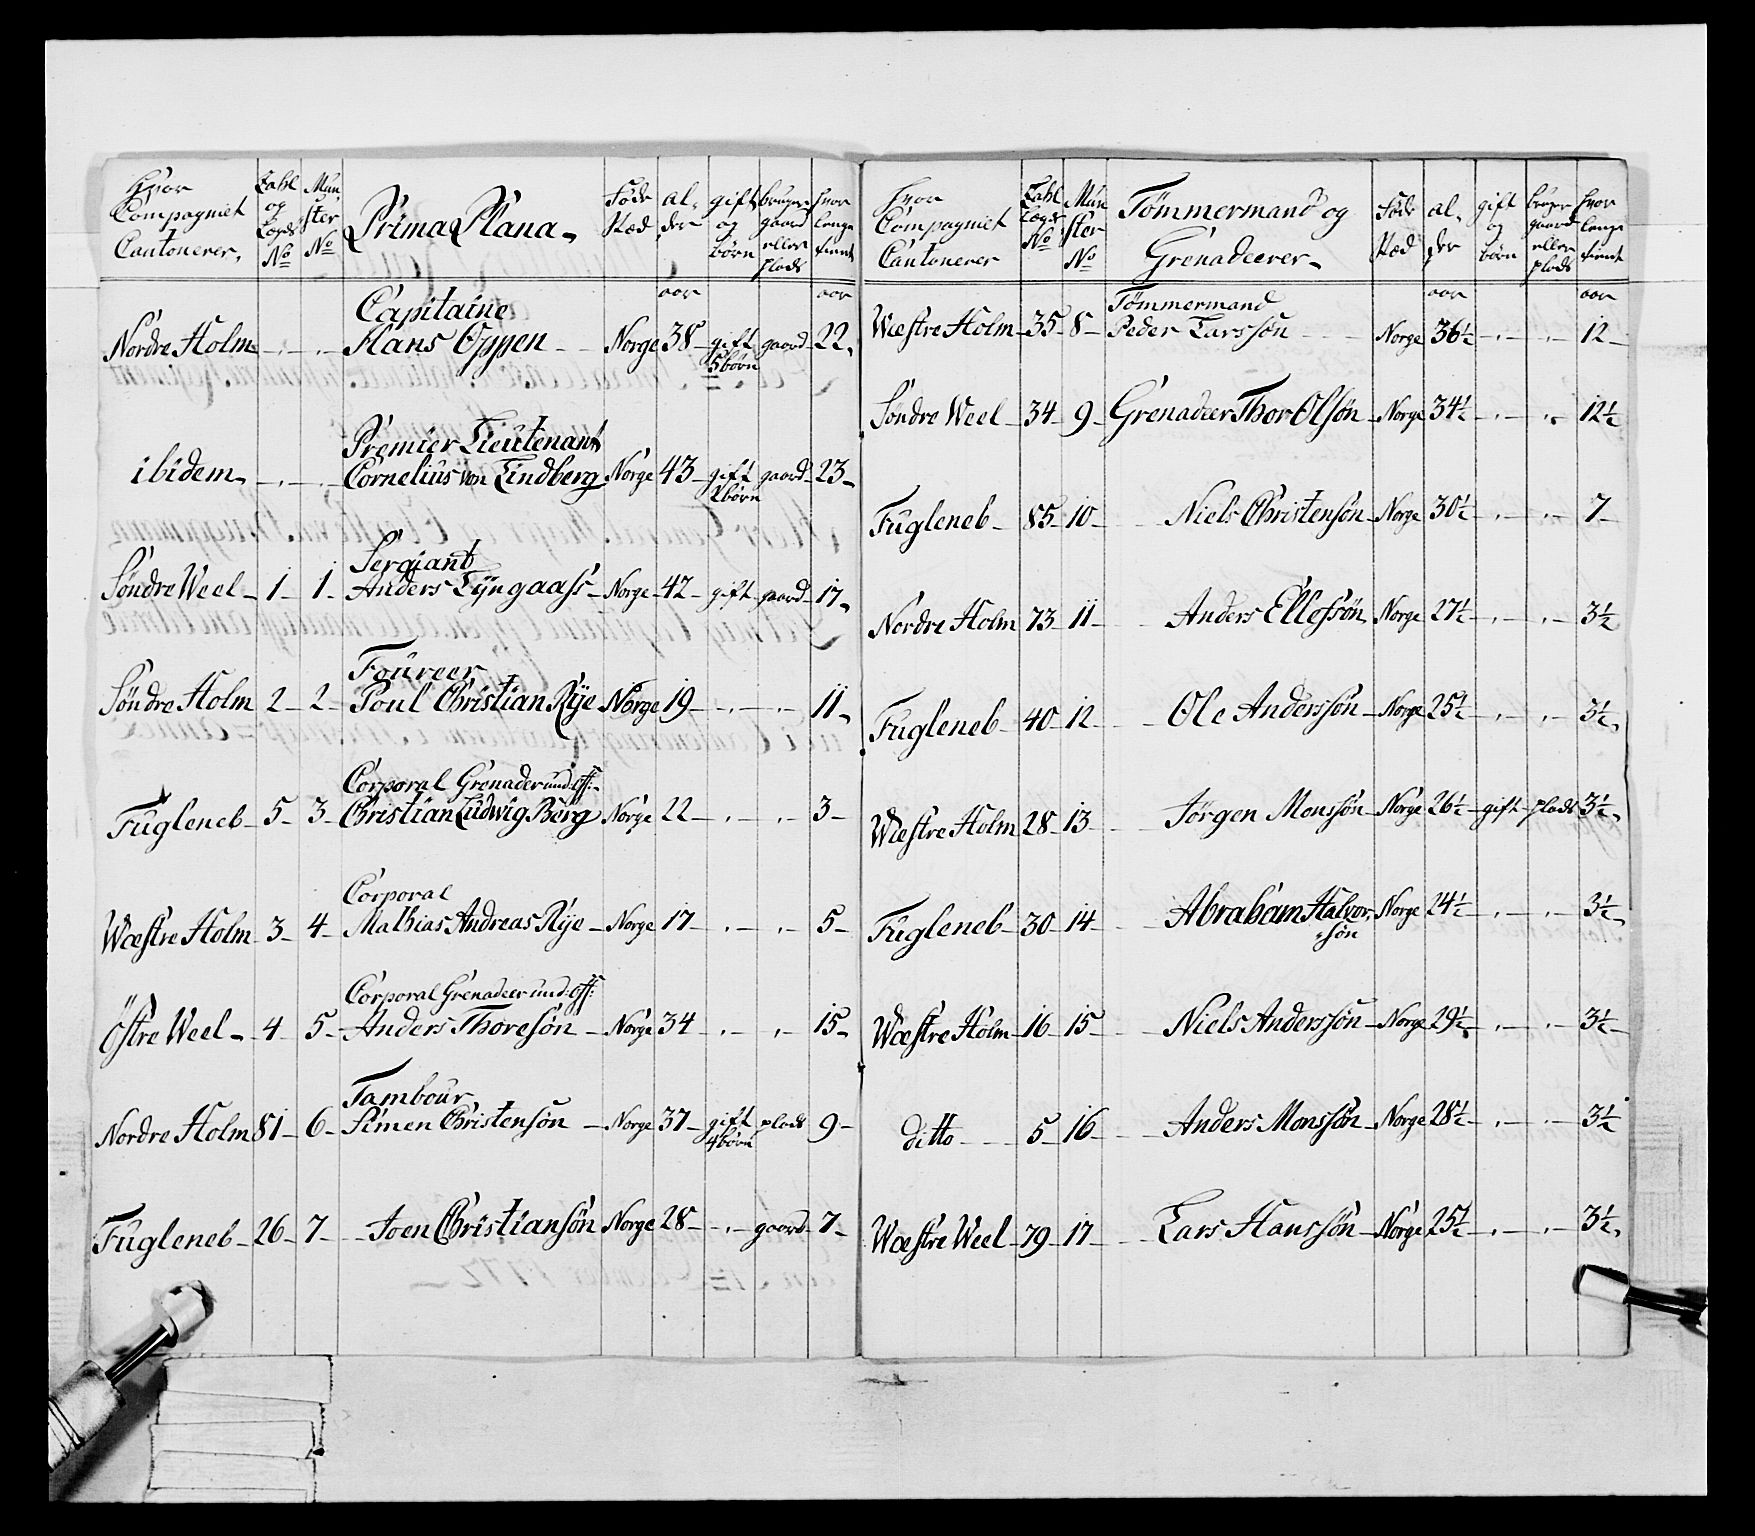 Hvor Compagniet Cantonerer, Zahl og Lægds No Mun ster No Prima Plana Føde stæd al, der gift og børn bruger gaard eller plads hvor lenge tient
aar aar
Capitaine
Nordre Holm Hans Oppen Norge 38 gift gaard 22,
5 børn
Premier Lieutenant
ibidem Cornelius von Lindberg Norge 43 gift gaard 23
2 børn
Sergiant
Søndre Weel 1 1 Anders Lÿngaass Norge 42 gift gaard 17
Foureer
Søndre Holm 2 2 Poul Christian Rÿe Norge 19 11
Corporal Grenader und: off:
Fugleneb 5 3 Christian Ludwig Berg Norge 22 3
Corporal
Wæstre Holm 3 4 Mathias Andreas Rÿe Norge 17 5
Corporal Grenadeer und: off:
Östre Weel 4 5 Anders Thoresøn Norge 34 15
Tambour
Nordre Holm 81 6 Simen Christensøn Norge 37 gift plads 9
4 børn
Fugleneb 26 7 Joen Christiansøn Norge 28 gaard 7
Hvor Compagniet Cantonerer Zahl Lægds No Mun ster No Tømmermand og Grenadeerer Føde stæd al, der gift og børn bruger gaard eller plads hvor lenge tient
aar aar
Tømmermand
Wæstre Holm 35 8 Peder Larssøn Norge 36½ 12
Søndre Weel 34 9 Grenadeer Thor Olsøn Norge 34½ 12½
Fugleneb 85 10 Niels Christensøn Norge 30½ 7
Nordre Holm 73 11 Anders Ellefsøn Norge 27½ 3½
Fugleneb 40 12 Ole Anderssøn Norge 25½ 3½
Wæstre Holm 28 13 Jørgen Monssøn Norge 26½ gift plads 3½
Fugleneb 30 14 Abraham Halvor Norge 24½ 3½
søn
Wæstre Holm 16 15 Niels Anderssøn Norge 29½ 3½
ditto 5 16 Anders Monssøn Norge 28½ 3½
Wæstre Weel 79 17 Lars Hanssøn Norge 25½ 3½